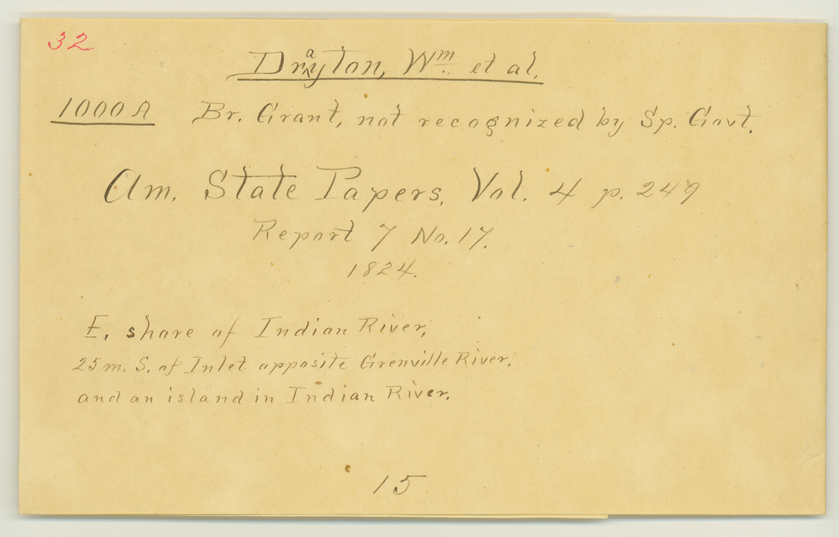 32
Drayton, Wm. et al.
1000 A Br. Grant, not recognized by Sp. Govt.
Am. State Papers, Vol. 4 p. 249
Report 7 No. 17.
1824.
E. share of Indian River,
25 m. S. of Inlet opposite Grenville River.
and an island in Indian River.
15